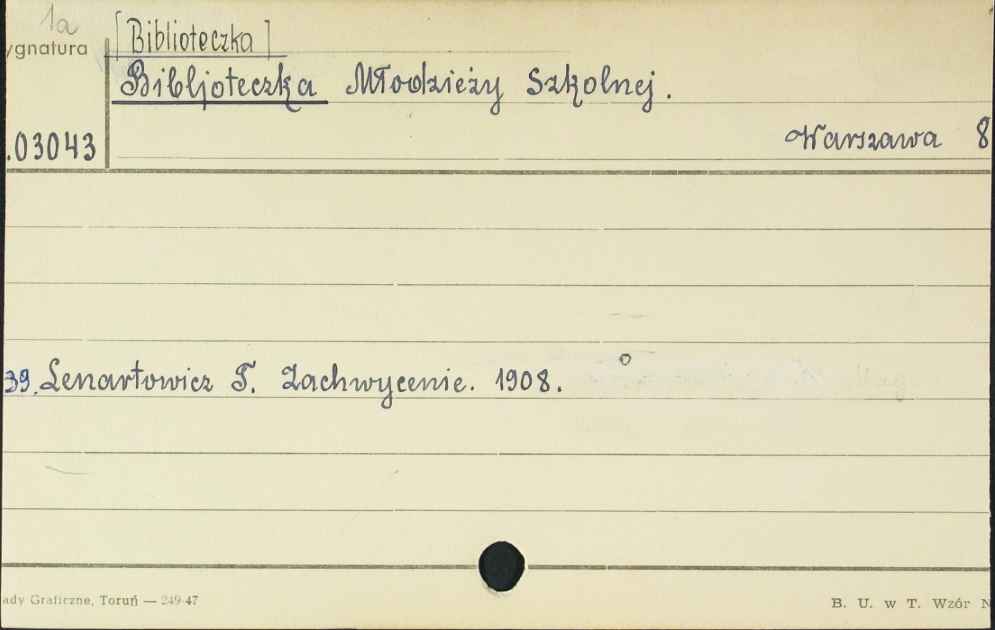 1a
ygnatura
[Biblioteczka]
Bibljoteczka Młodzieży Szkolnej.
.03043
Warszawa 8
39. Lenartowicz T. Zachwycenie. 1908.
ady Graficzne, Toruń — 249-47
B. U. w T. Wzór N